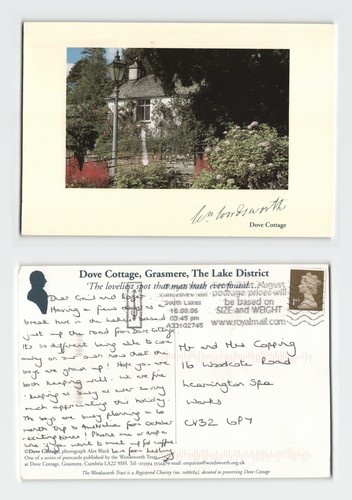 Wm Wordsworth
Dove Cottage
Dove Cottage, Grasmere, The Lake District
'The loveliest spot that man hath ever found'
Dear Gail and
Having a few days
break here in the Lakes based
just up the road from Dove Cottage.
It's so different being able to come
away on our own now that the
boys are grown up! Hope you are
both keeping well. We are fine
keeping as busy as ever so very
much appreciating this holiday.
The boys are busy planning a 6
month trip to Australia from October
exciting times! Phone me or pop in
if you want to meet up for coffee.
Love from
South Lakes
16.08.06
03:45 pm
A33102745
August
postage prices will
be based on
SIZE and WEIGHT
www.royalmail.com
1st
Mr and Mrs Copping
16 Woodcote Road
Leamington Spa
Warks
CV32 6PY
Dove Cottage, photograph Alex Black
One of a series of postcards published by the Wordsworth Trust
at Dove Cottage, Grasmere, Cumbria LA22 9SH. Tel: 015394 35544 e-mail: enquiries@wordsworth.org.uk
The Wordsworth Trust is a Registered Charity (no. 1066184), devoted to preserving Dove Cottage